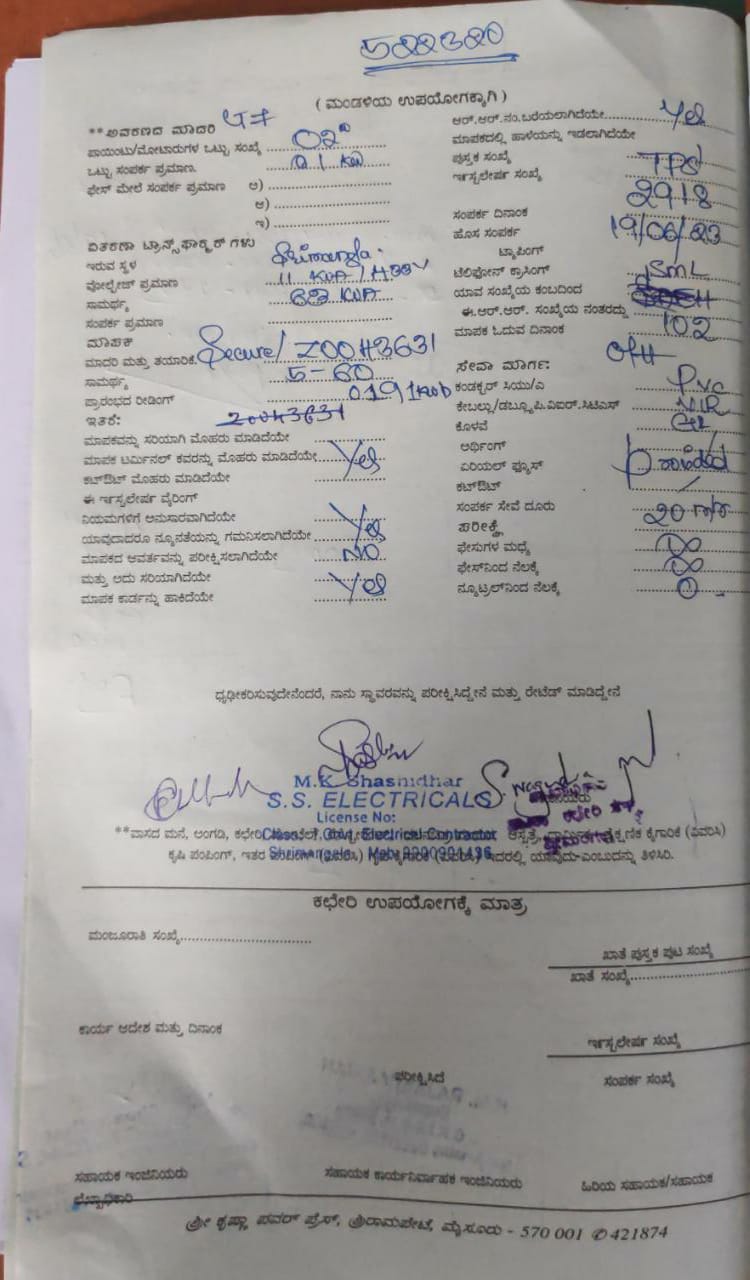 522320
( ಮಂಡಳಿಯ ಉಪಯೋಗಕ್ಕಾಗಿ )
**ಅವಕಣದ ಮಾದರಿ
ಪಾಯಿಂಟು/ಮೋಟಾರುಗಳ ಒಟ್ಟು ಸಂಖ್ಯೆ 02
ಒಟ್ಟು ಸಂಪರ್ಕ ಪ್ರಮಾಣ. 0.1 KW
ಫೇಸ್ ಮೇಲೆ ಸಂಪರ್ಕ ಪ್ರಮಾಣ ಅ)
ಆ)
ಇ)
ವಿತರಣಾ ಟ್ರಾನ್ಸ್‌ಫಾರ್ಮರ್ ಗಳು
ಇರುವ ಸ್ಥಳ Srimangla
ವೋಲ್ಟೇಜ್ ಪ್ರಮಾಣ 11 KVA / 433V
ಸಾಮರ್ಥ್ಯ 63 KVA
ಸಂಪರ್ಕ ಪ್ರಮಾಣ
ಮಾಪಕ
ಮಾದರಿ ಮತ್ತು ತಯಾರಿಕೆ. Secure/ Z0043631
ಸಾಮರ್ಥ್ಯ 5-60
ಪ್ರಾರಂಭದ ರೀಡಿಂಗ್ 0191 kwh
ಇತರೆ:
ಮಾಪಕವನ್ನು ಸರಿಯಾಗಿ ಮೊಹರು ಮಾಡಿದೆಯೇ
ಮಾಪಕ ಟರ್ಮಿನಲ್ ಕವರನ್ನು ಮೊಹರು ಮಾಡಿದೆಯೇ Yes
ಕಟ್‌ಔಟ್ ಮೊಹರು ಮಾಡಿದೆಯೇ
ಈ ಇನ್ಸ್ಟಲೇಷನ್ ವೈರಿಂಗ್
ನಿಯಮಗಳಿಗೆ ಅನುಸಾರವಾಗಿದೆಯೇ Yes
ಯಾವುದಾದರೂ ನ್ಯೂನತೆಯನ್ನು ಗಮನಿಸಲಾಗಿದೆಯೇ
ಮಾಪಕದ ಆವರ್ತವನ್ನು ಪರೀಕ್ಷಿಸಲಾಗಿದೆಯೇ NO
ಮತ್ತು ಅದು ಸರಿಯಾಗಿದೆಯೇ Yes
ಮಾಪಕ ಕಾರ್ಡನ್ನು ಹಾಕಿದೆಯೇ
ಆರ್.ಆರ್.ನಂ.ಬರೆಯಲಾಗಿದೆಯೇ Yes
ಮಾಪಕದಲ್ಲಿ ಹಾಳೆಯನ್ನು ಇಡಲಾಗಿದೆಯೇ
ಪುಸ್ತಕ ಸಂಖ್ಯೆ TPS
ಇನ್ಸ್ಟಲೇಷನ್ ಸಂಖ್ಯೆ 2918
ಸಂಪರ್ಕ ದಿನಾಂಕ 19/06/23
ಹೊಸ ಸಂಪರ್ಕ
ಟ್ಯಾಪಿಂಗ್
ಟೆಲಿಫೋನ್ ಕ್ರಾಸಿಂಗ್ SML
ಯಾವ ಸಂಖ್ಯೆಯ ಕಂಬದಿಂದ
ಈ.ಆರ್.ಆರ್. ಸಂಖ್ಯೆಯ ನಂತರದ್ದು
ಮಾಪಕ ಓದುವ ದಿನಾಂಕ 102
ಸೇವಾ ಮಾರ್ಗ: OH
ಕಂಡಕ್ಟರ್ ಸಿಯು/ಎ PVC
ಕೇಬಲ್ಲು/ಡಬ್ಲ್ಯೂ.ಪಿ.ವಿಐಆರ್.ಸಿಟಿಎಸ್
ಕೊಳವೆ
ಅರ್ಥಿಂಗ್
ಏರಿಯಲ್ ಫ್ಯೂಸ್ Provided
ಕಟ್‌ಔಟ್
ಸಂಪರ್ಕ ಸೇವೆ ದೂರ 20
ಪರೀಕ್ಷೆ
ಫೇಸುಗಳ ಮಧ್ಯೆ ∞
ಫೇಸ್‌ನಿಂದ ನೆಲಕ್ಕೆ ∞
ನ್ಯೂಟ್ರಲ್‌ನಿಂದ ನೆಲಕ್ಕೆ 0
ಧೃಢೀಕರಿಸುವುದೇನೆಂದರೆ, ನಾನು ಸ್ಥಾವರವನ್ನು ಪರೀಕ್ಷಿಸಿದ್ದೇನೆ ಮತ್ತು ರೇಟೆಡ್ ಮಾಡಿದ್ದೇನೆ
M.K. Shashidhar
S.S. ELECTRICALS
License No:
Class I Govt. Electrical Contractor
**ವಾಸದ ಮನೆ, ಅಂಗಡಿ, ಕಛೇರಿ, ಆಸ್ಪತ್ರೆ, ಧಾರ್ಮಿಕ, ಶೈಕ್ಷಣಿಕ ಕೈಗಾರಿಕೆ (ವಿವರಿಸಿ)
ಕೃಷಿ ಪಂಪಿಂಗ್, ಇತರ ಇದರಲ್ಲಿ ಯಾವುದು-ಎಂಬುದನ್ನು ತಿಳಿಸಿರಿ.
ಕಛೇರಿ ಉಪಯೋಗಕ್ಕೆ ಮಾತ್ರ
ಮಂಜೂರಾತಿ ಸಂಖ್ಯೆ
ಖಾತೆ ಪುಸ್ತಕ ಪುಟ ಸಂಖ್ಯೆ
ಖಾತೆ ಸಂಖ್ಯೆ
ಕಾರ್ಯ ಆದೇಶ ಮತ್ತು ದಿನಾಂಕ
ಇನ್ಸ್ಟಲೇಷನ್ ಸಂಖ್ಯೆ
ಪರೀಕ್ಷಿಸಿದೆ
ಸಂಪರ್ಕ ಸಂಖ್ಯೆ
ಸಹಾಯಕ ಇಂಜಿನಿಯರು
ಸಹಾಯಕ ಕಾರ್ಯನಿರ್ವಾಹಕ ಇಂಜಿನಿಯರು
ಹಿರಿಯ ಸಹಾಯಕ/ಸಹಾಯಕ
ಲೆಕ್ಕಾಧಿಕಾರಿ
ಶ್ರೀ ಕೃಷ್ಣಾ ಪವರ್ ಪ್ರೆಸ್, ಶ್ರೀರಾಮಪೇಟೆ, ಮೈಸೂರು - 570 001 ✆ 421874